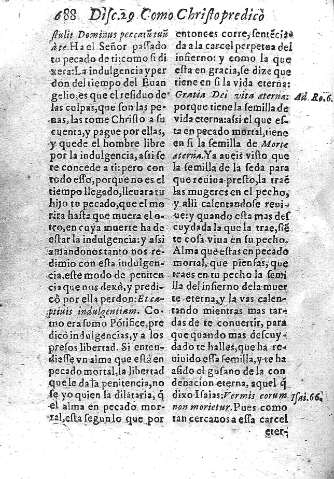 688 Disc. 29. Como Christo predicò
stulit Dominus peccatũ tuũ
à te. Ha el Señor passado
tu pecado de ti: como si di
xera: La indulgencia y per
don del tiempo del Euan
gelio, es que el residuo de
las culpas, que son las pe
nas, las tome Christo a su
cuenta, y pague por ellas,
y quede el hombre libre
por la indulgencia, assi se
te concede a ti: pero con
todo esso, porque no es el
tiempo llegado, lleuara tu
hijo tu pecado, que el mo
rira hasta que muera el o-
tro, en cuya muerte ha de
estar la indulgencia: y assi
andando el tanto nos re-
dimio con esta indulgen-
cia, este modo de peniten
cia que nos dexò, y predicò
por ella perdon: Et ca-
ptiuis indulgentiam. Co
mo era sumo Põtifice, pre
dicò indulgencias, y a los
presos libertad. Si enten-
diesse vn alma que està en
pecado mortal, la libertad
que le da la penitencia, no
se yo quien la dilataria, q̃
el alma en pecado mor-
tal, esta segun lo que por
entonces corre, sentẽcia
da a la carcel perpetua del
infierno: y como la que
esta en gracia, se dize que
tiene en si la vida eterna:
Gratia Dei vita eterna: Ad Ro. 6.
porque tiene la semilla de
vida eterna: assi el que es-
ta en pecado mortal, tiene
en si la semilla de Morte
æterna. Ya aueis visto que
la semilla de la seda para
que reuiua presto, la traẽ
las mugeres en el pecho,
y alli calentandose reui-
ue: y quando esta mas des
cuydada la que la trae, siẽ
te cosa viua en su pecho.
Alma que estas en pecado
mortal, que piensas, que
traes en tu pecho la semi
lla del infierno de la muer
te eterna, y la vas calen-
tando mientras mas tar-
das de te conuertir, para
que quando mas descuy-
dado te halles, que ha re-
uiuido essa semilla, y te ha
asido el gusano de la con
denacion eterna, aquel q̃
dixo Isaias: Vermis eorum Isai. 66.
non morietur. Pues como
tan cercanos a essa carcel
eter-